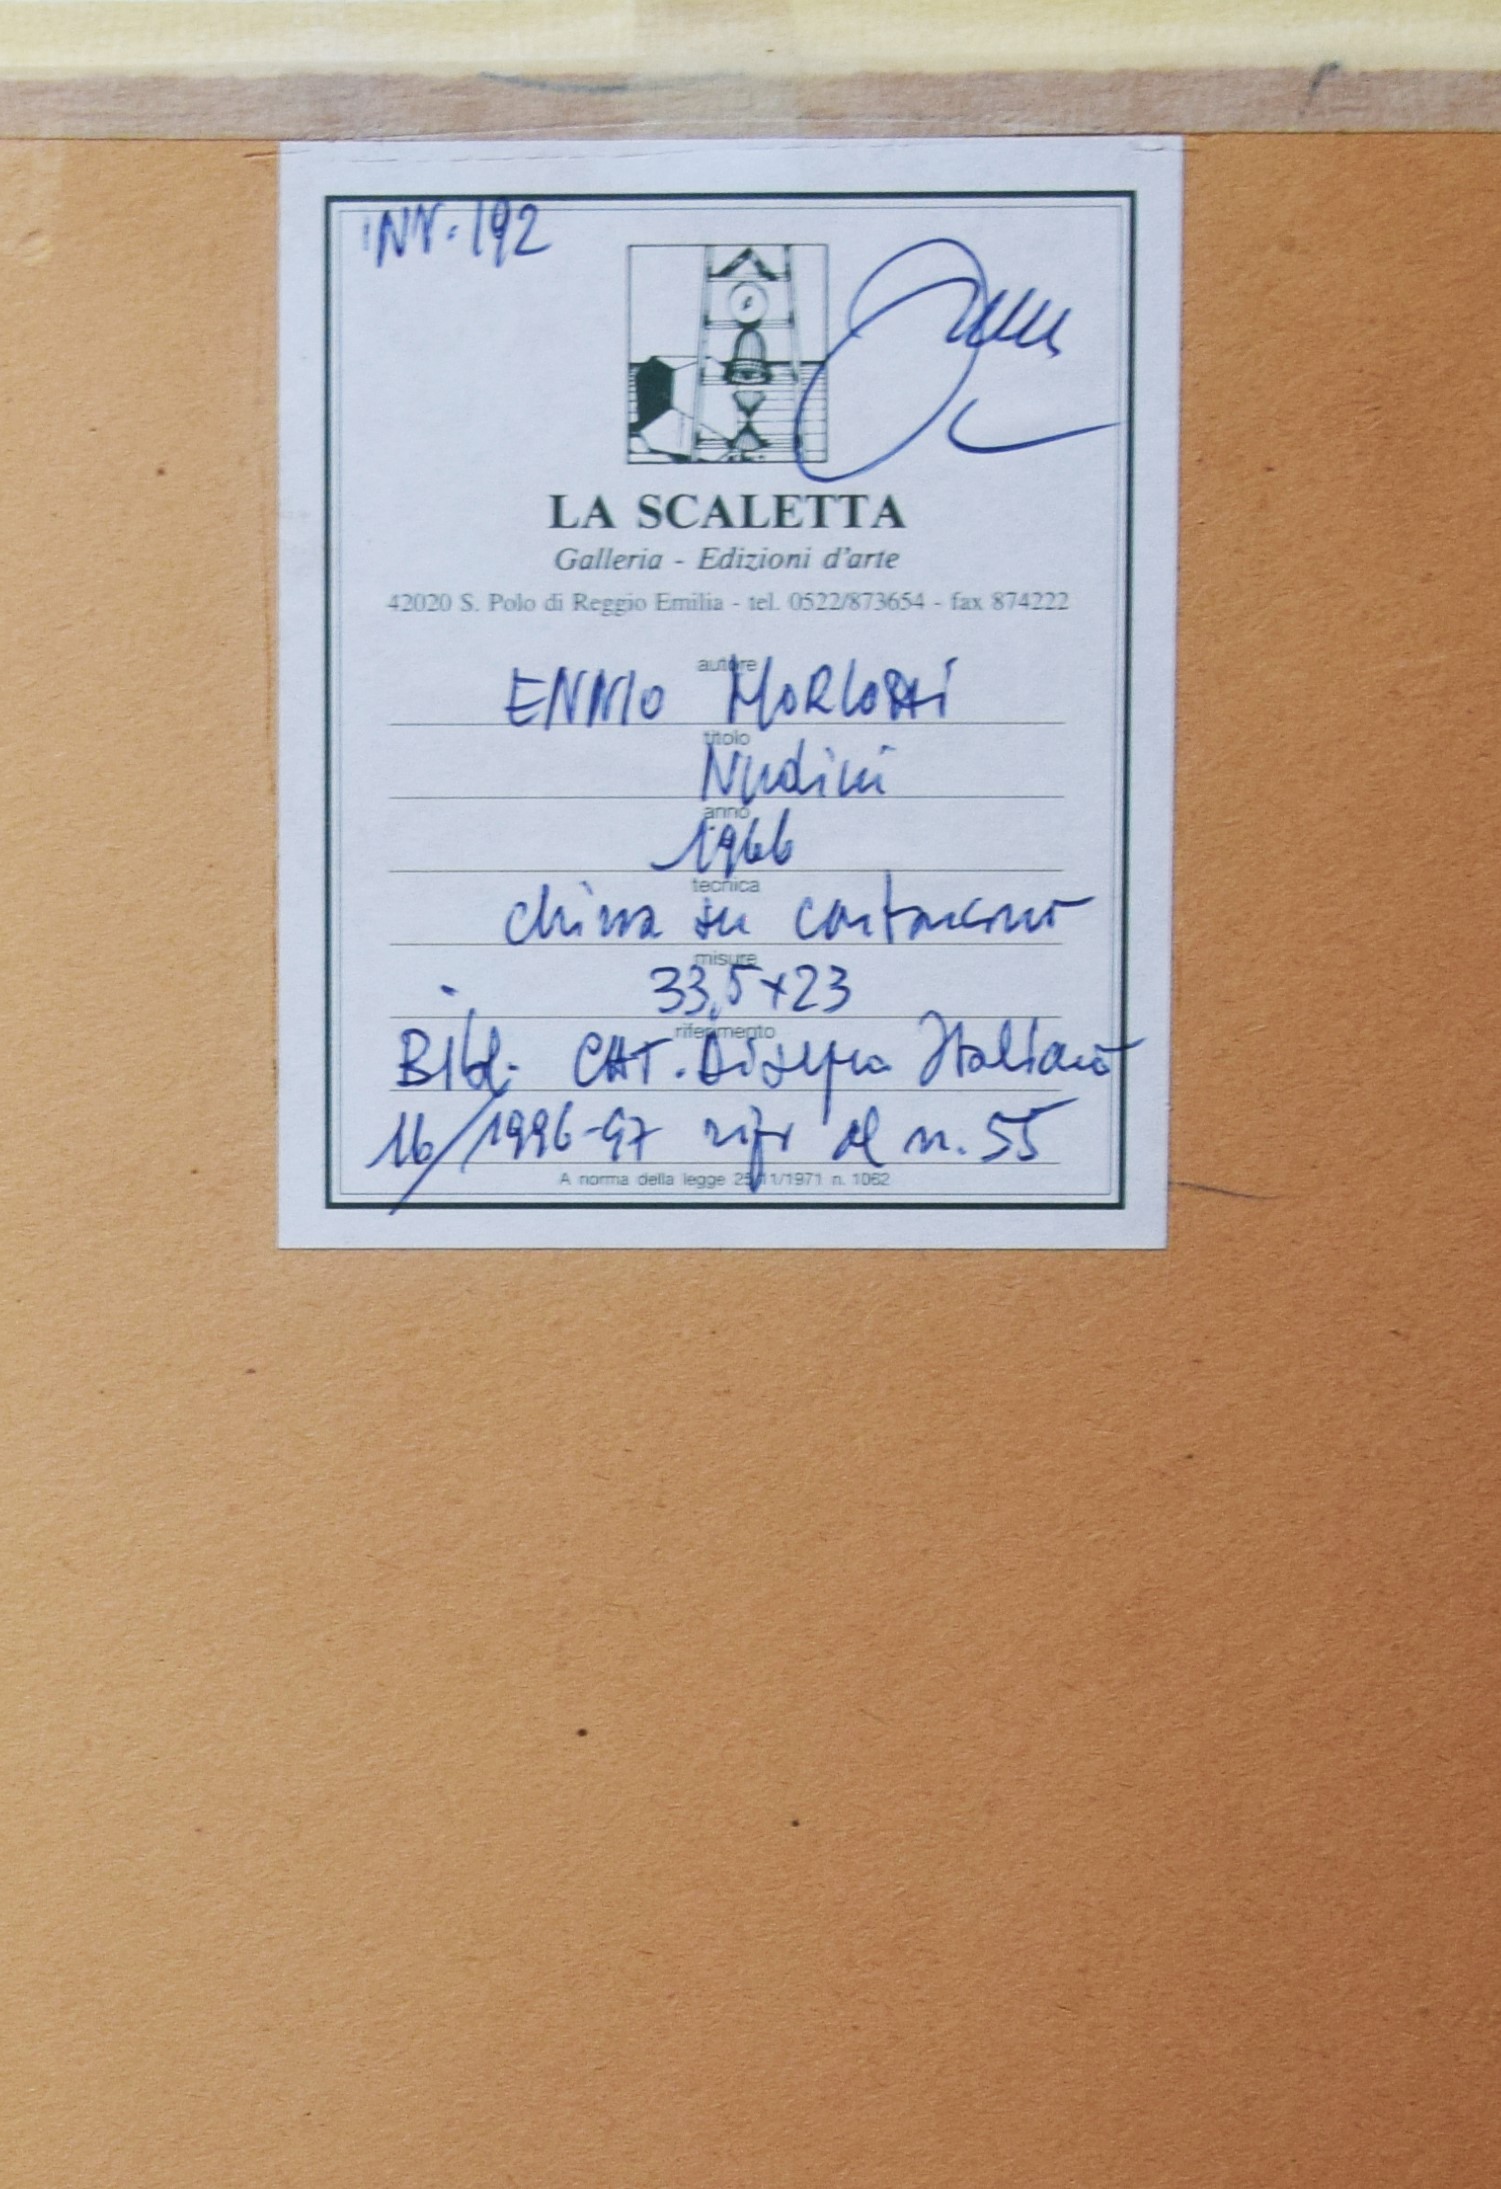 INV. 192
LA SCALETTA
Galleria - Edizioni d'arte
42020 S. Polo di Reggio Emilia - tel. 0522/873654 - fax 874222
autore
ENNIO MORLOTTI
titolo
Nudini
anno
1966
tecnica
china su cartoncino
misure
33,5x23
riferimento
Bibl. CAT. Disegno Italiano
16/1996-97 rifr al n. 55
A norma della legge 25/11/1971 n. 1062